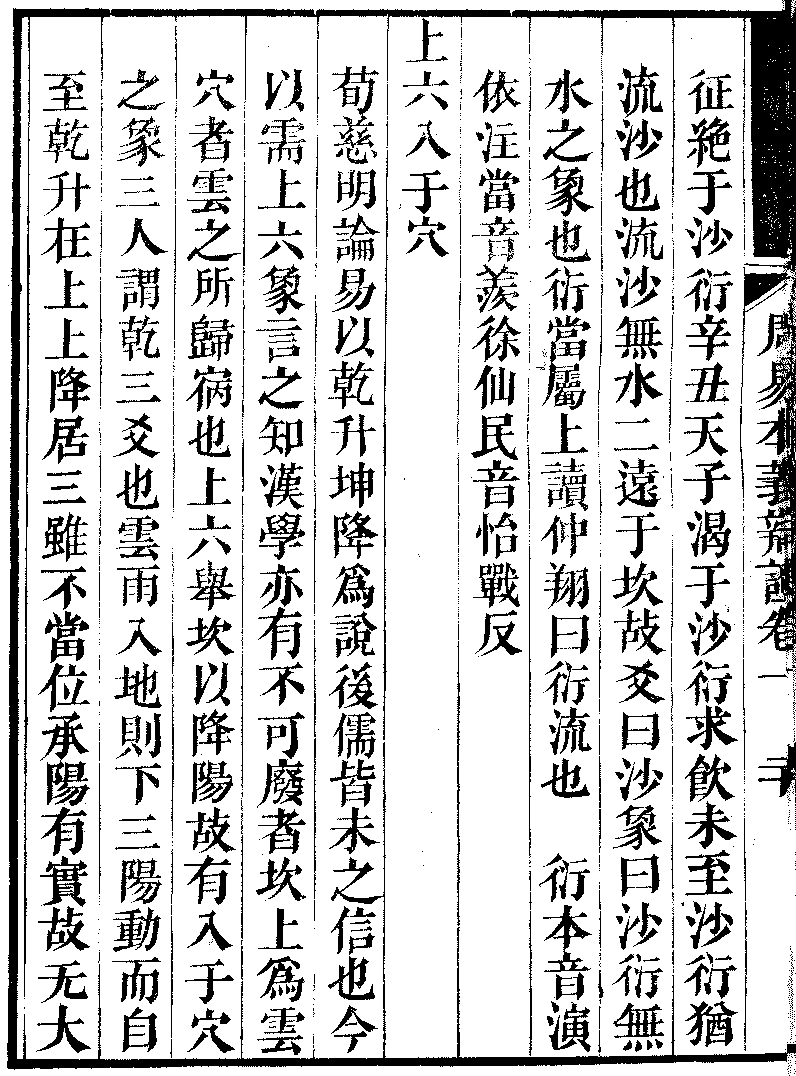 周易本義辯證卷一 二十
征絶于沙衍辛丑天子渴于沙衍求飲未至沙衍猶
流沙也流沙無水二遠于坎故爻曰沙象曰沙衍無
水之象也衍當屬上讀仲翔曰衍流也 衍本音演
依注當音羨徐仙民音怡戰反
上六入于穴
荀慈明論易以乾升坤降爲說後儒皆未之信也今
以需上六象言之知漢學亦有不可廢者坎上爲雲
穴者雲之所歸𡧱也上六舉坎以降陽故有入于穴
之象三人謂乾三爻也雲雨入地則下三陽動而自
至乾升在上上降居三雖不當位承陽有實故无大